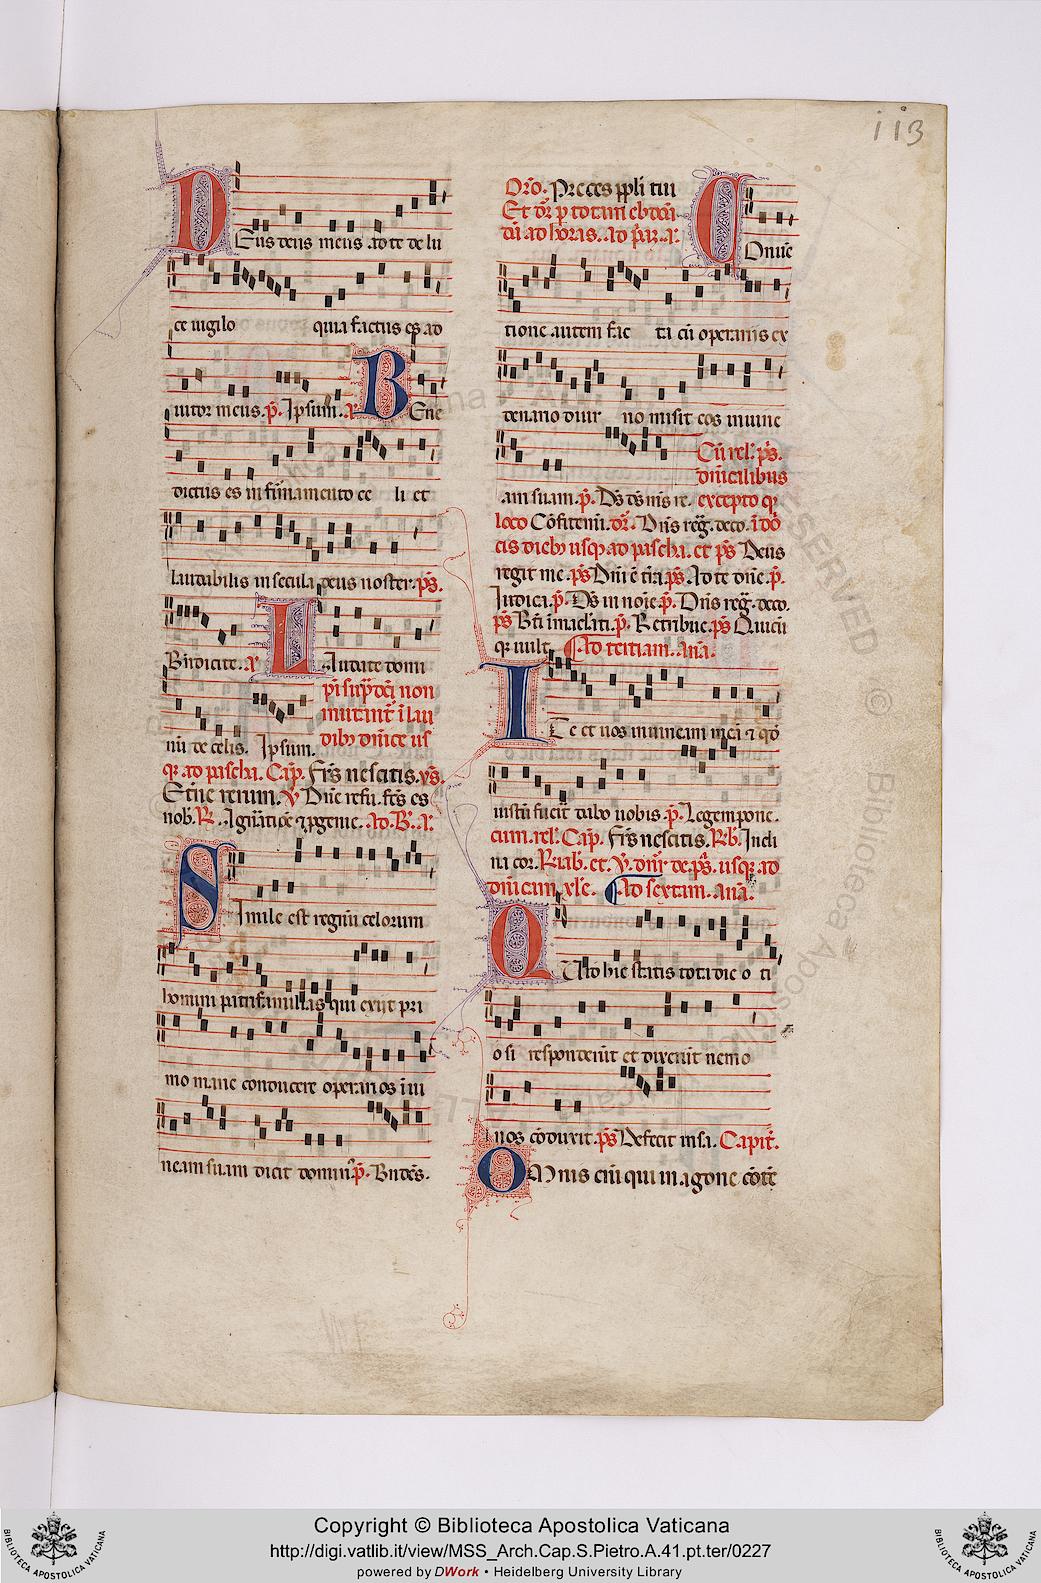 113
Deus deus meus ad te de lu
ce vigilo quia factus es ad
iutor meus. p̄. Ipsum. a Bene
dictus es in firmamento ce li et
laudabilis in secula deus noster. ps̄.
Bn̄dicite. a Laudate domi
num de celis. Ipsum.
pi sup̄dc̄i non
mutant̉ ī lau
dib̉ dn̄ice us
q̉ ad pascha. Cap̄. Fr̄s nescitis. ys̄.
Et̄ne rerum. V Dn̄e refu. fc̄s es
nob̉. R̄. ad. B. a.
Simile est regnū celorum
homini patrifamilias qui exiit pri
mo mane conducere operarios ī vi
neam suam dicit domin̉. p̄. Bn̄dc̄s.
Or̄o. Preces pp̄li tui
Conuē
tione autem fac ta cū operariis ex
denario diur no misit eos in uine
am suam. p̄. Ds̄ ds̄ ms̄ re.
Cū rel̉. ps̄.
dn̄icalibus
excepto q̉
loco Cōfitemī. Dn̄s reḡ. deco.
cis dieb̉ usq̉ ad pascha. et ps̄ Deus
regit me. ps̄ Dn̄i ē tr̄a. ps̄. Ad te dn̄e. p̄.
Iudica. p̄. Ds̄ in noīe. p̄. Dn̄s reḡ. deco.
ps̄ Bt̄i īmacl̄ati. p̄. Retribue. ps̄ Quicū
q̉ uult. Ad tertiam. an̄a.
Ite et uos in uineam meā ⁊ qd̄
iustū fuerit dabo uobis. p̄. Legem pone.
cum. rel̉. Cap̄. Fr̄s nescitis. R̄b̉. Incli
na cor. ps̄. usq̉ ad
dn̄icam xl̄e. Ad sextam. an̄a.
Quid hic statis tota die o ti
osi respondentes et dixerūt nemo
nos cōduxit. ps̄ Defecit in sa. Capit̄.
Omnis enī qui in agone cōtē
Copyright © Biblioteca Apostolica Vaticana
http://digi.vatlib.it/view/MSS_Arch.Cap.S.Pietro.A.41.pt.ter/0227
powered by DWork • Heidelberg University Library
BIBLIOTECA APOSTOLICA VATICANA
BIBLIOTECA APOSTOLICA VATICANA